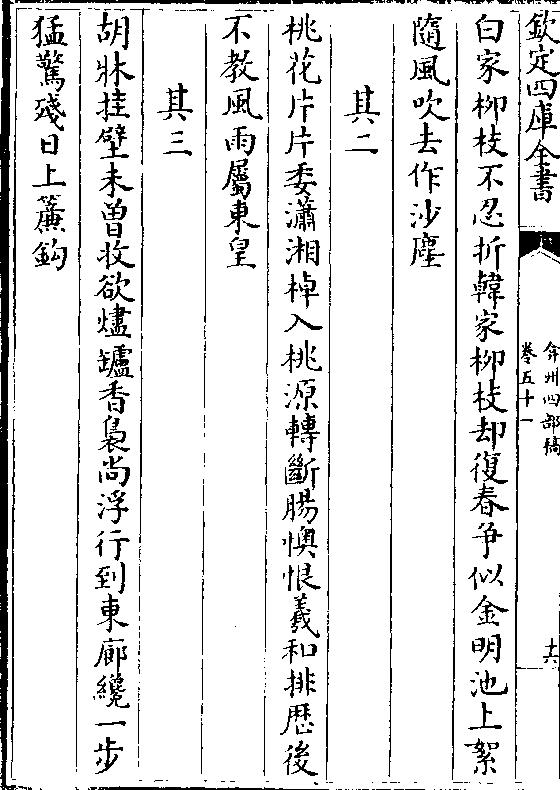 欽定四庫全書
弇州四部稿
卷五十一
十六
白家柳枝不忍折韓家柳枝却復春爭似金明池上絮
隨風吹去作沙塵
其二
桃花片片委瀟湘棹入桃源轉斷腸懊恨羲和排歷後
不教風雨屬東皇
其三
胡牀挂壁未曽收欲燼罏香裊尚浮行到東廊纔一步
猛驚殘日上簾鈎